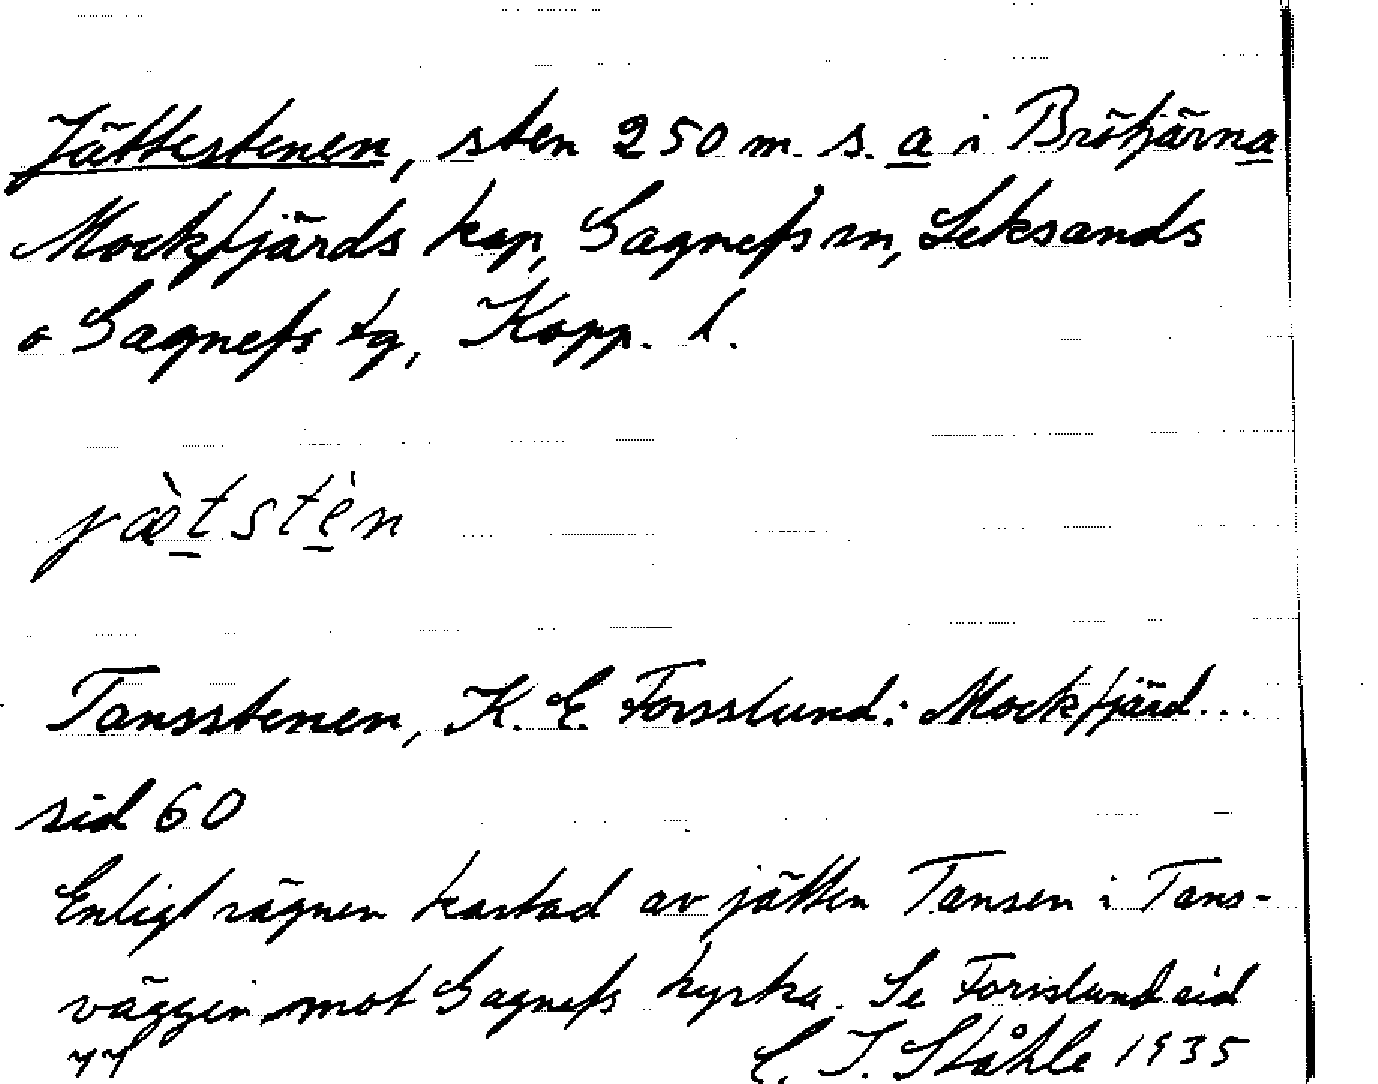 Jättestenen, sten 250 m. s. a i Brötjärna
Mockfjärds kap, Gagnefs sn, Leksands
o Gagnefs tg, Kopp. l.
jæ̀tstèn
Tansstenen, K. E. Forsslund: Mockfjärd...
sid 60
Enligt sägnen kastad av jätten Tansen i Tans-
väggen mot Gagnefs kyrka. Se Forsslund sid
77
C. I. Ståhle 1935